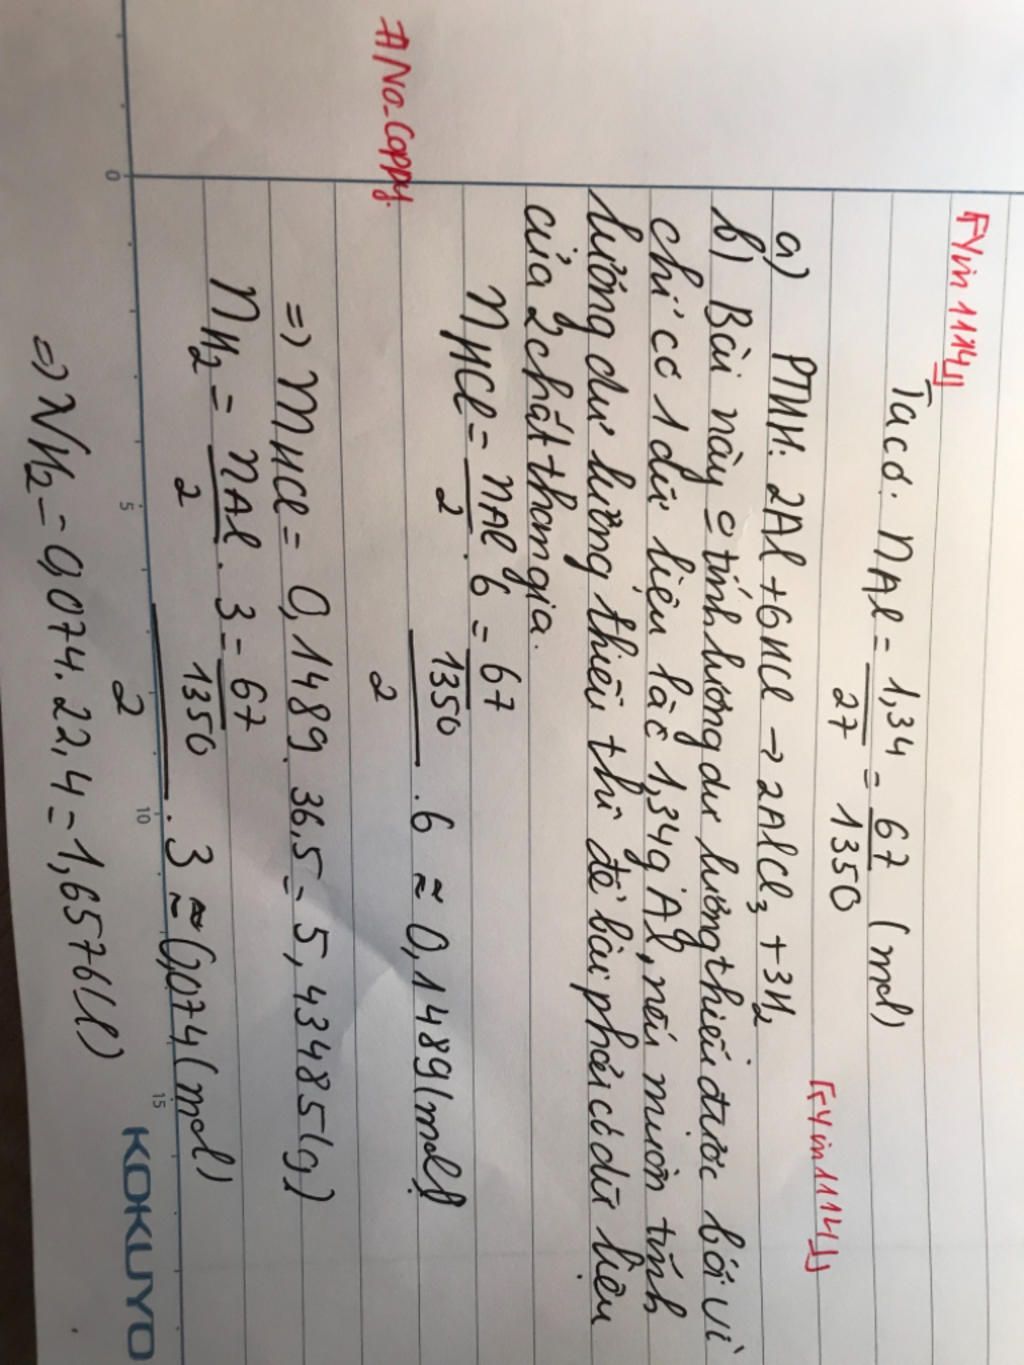 [Yin1114]
Ta có. nAl = 1,34/27 = 67/1350 (mol)
[Yin1114]
a) PTHH: 2Al + 6HCl → 2AlCl3 + 3H2
b) Bài này o tính lượng dư lượng thiếu được bởi vì
chỉ có 1 dữ liệu là 1,34g Al, nếu muốn tính
lượng dư lượng thiếu thì đề bài phải có dữ liệu
của 2 chất tham gia.
nHCl = nAl/2 . 6 = 67/1350/2 . 6 ≈ 0,1489(mol)
#No_Coppy.
=> mHCl = 0,1489.36,5 = 5,43485(g)
nH2 = nAl/2 . 3 = 67/1350/2 . 3 ≈ 0,074(mol)
=> VH2 = 0,074.22,4 = 1,6576(l)
0 5 10 15
KOKUYO